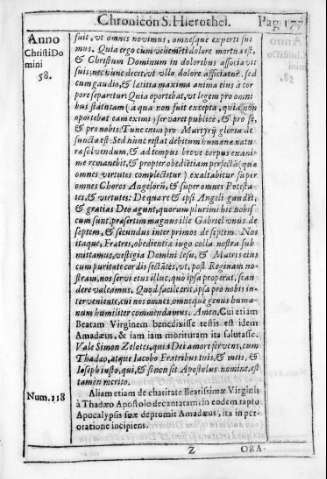 Chronicon S. Hierothei. Pag. 177
Anno
Christi Do
mini
58.
fuit, vt omnes novimus, omnesque experti su-
mus. Quia ergo cum vehemēti dolore mortua est,
& Christum Dominum in doloribus associavit
suis; nec nunc decet, vt vllo dolore associatur. sed
cum gaudio, & latitia maxima anima eius à cor
pore separetur. Quia oportebat, vt legem pro omni
bus statutam (à qua non fuit excepta, quia non
oportebat eam eximi) servaret publicè, & pro se,
& pro nobis. Tunc enim pro Martyrij gloria de
functa est: Sed nunc restat debitum humanæ natu
ræ solvendum, & ad tempus breve corpus exani-
me remanebit, & propter obediētiam perfectā (quæ
omnes virtutes complectitur) exaltabitur super
omnes Choros Angelorū, & super omnes Potesta-
tes, & virtutes: De qua re & ipsi Angeli gaudēt,
& gratias Deo agunt, quorum plurimi hic nobis
cum sunt præsertim magnus ille Gabriel vnus de
septem, & secundus inter primos de septem. Nos
itaque, Fratres, obedientiæ iugo colla nostra sub-
mittamus, vestigia Domini Iesu, & Matris eius
cum puritate cordis sectātes, vt, post Reginam no-
stram, nos servi eius illuc, quò ipsa properat, scan
dere valeamus. Quod facilè erit, ipsa pro nobis in-
terveniente, cui nos omnes, omneque genus huma-
num humiliter commendamus. Amen. Cui etiam
Beatam Virginem benedixisse testis est idem
Amadæus, & iam iam morituram ita salutasse.
Vale Simon Zelotes, quia Dei amore fervens, cum
Thadæo, atque Iacobo Fratribus tuis, & meis, &
Iosepho iusto, qui, & si non sit Apostolus nomine, est
tamen merito.
Num. 118
Aliam etiam de charitate Beatissimæ Virginis
à Thadæo Apostolo decantatam in eodem raptu
Apocalypsis suæ depromit Amadæus, ita in per-
oratione incipiens.
Z ORA-